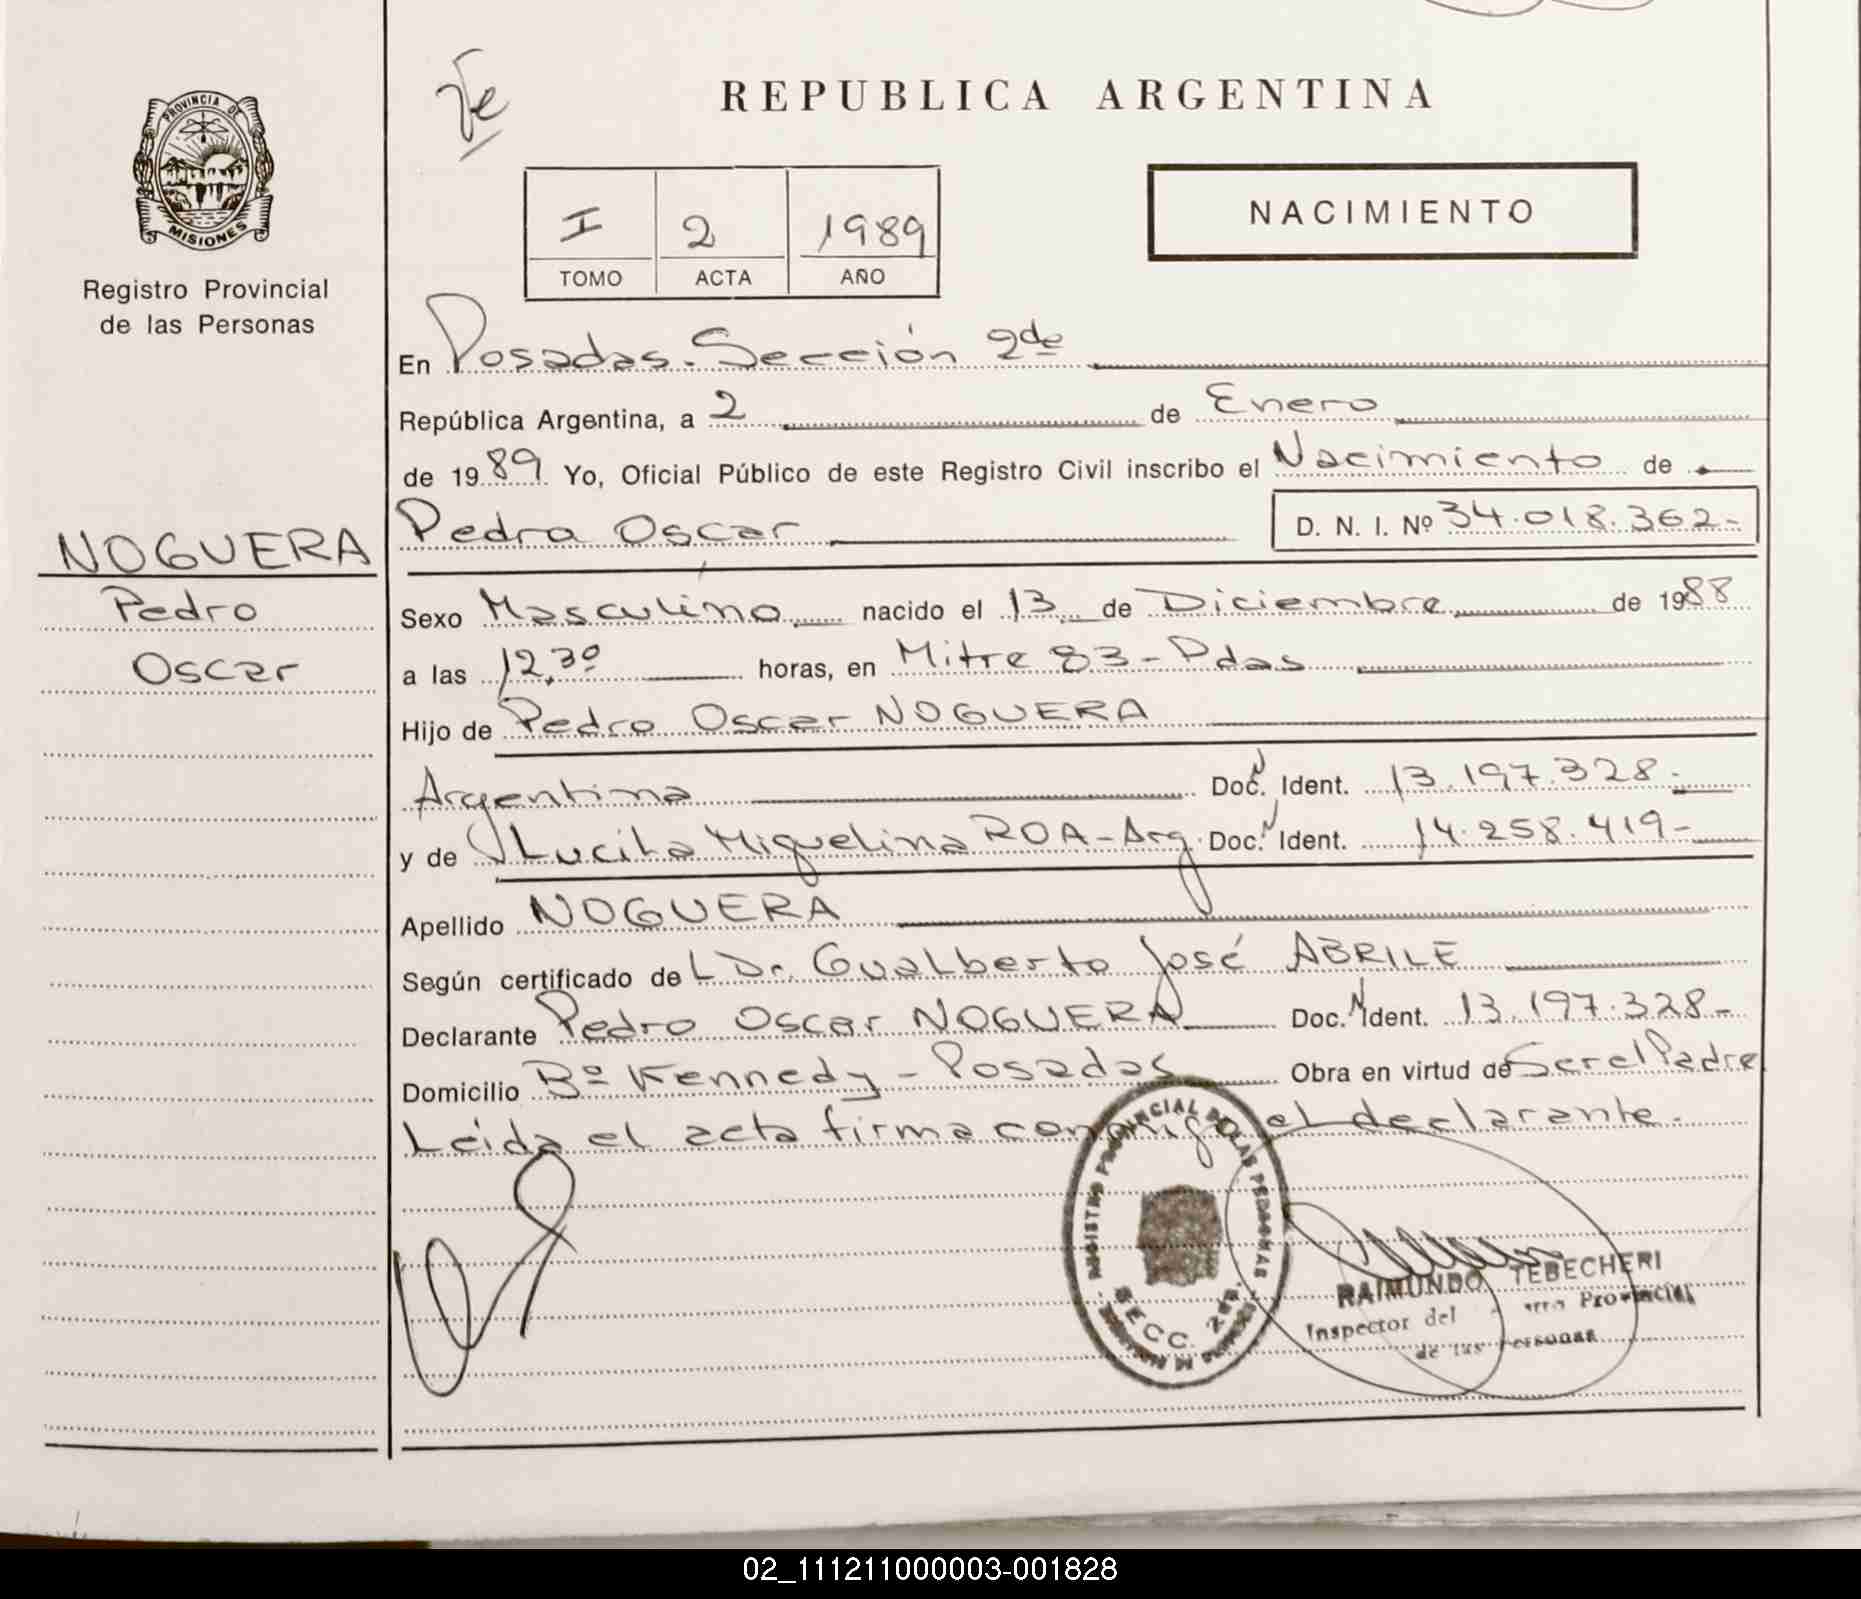 Ve
REPUBLICA ARGENTINA
PROVINCIA DE
MISIONES
Registro Provincial
de las Personas
I 2 1989
TOMO ACTA AÑO
NACIMIENTO
En Posadas. Sección 2da
República Argentina, a 2 de Enero
de 1989 Yo, Oficial Público de este Registro Civil inscribo el Nacimiento de
NOGUERA Pedro Oscar D. N. I. Nº 34.018.362-
Pedro
Oscar
Sexo Masculino nacido el 13 de Diciembre de 1988
a las 12,30 horas, en Mitre 83-Pdas
Hijo de Pedro Oscar NOGUERA
Argentino Doc. Ident. 13.197.328.-
y de Lucila Miguelina ROA-Arg. Doc. Ident. 14.258.419-
Apellido NOGUERA
Según certificado de L Dr. Gualberto José ABRILE
Declarante Pedro Oscar NOGUERA Doc. Ident. 13.197.328-
Domicilio Bº Kennedy - Posadas Obra en virtud de Ser el Padre
Leida el acta firma conmigo el declarante.-
REGISTRO PROVINCIAL DE LAS PERSONAS
SECC. 2da.
RAIMUNDO TEBECHERI
Inspector del Provincial
de las Personas
02_111211000003-001828